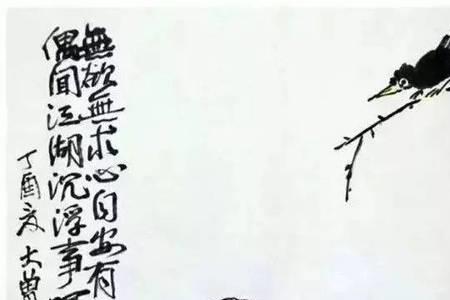 無欲無求心自安有
偶聞江湖沉浮事
丁酉夏大曾